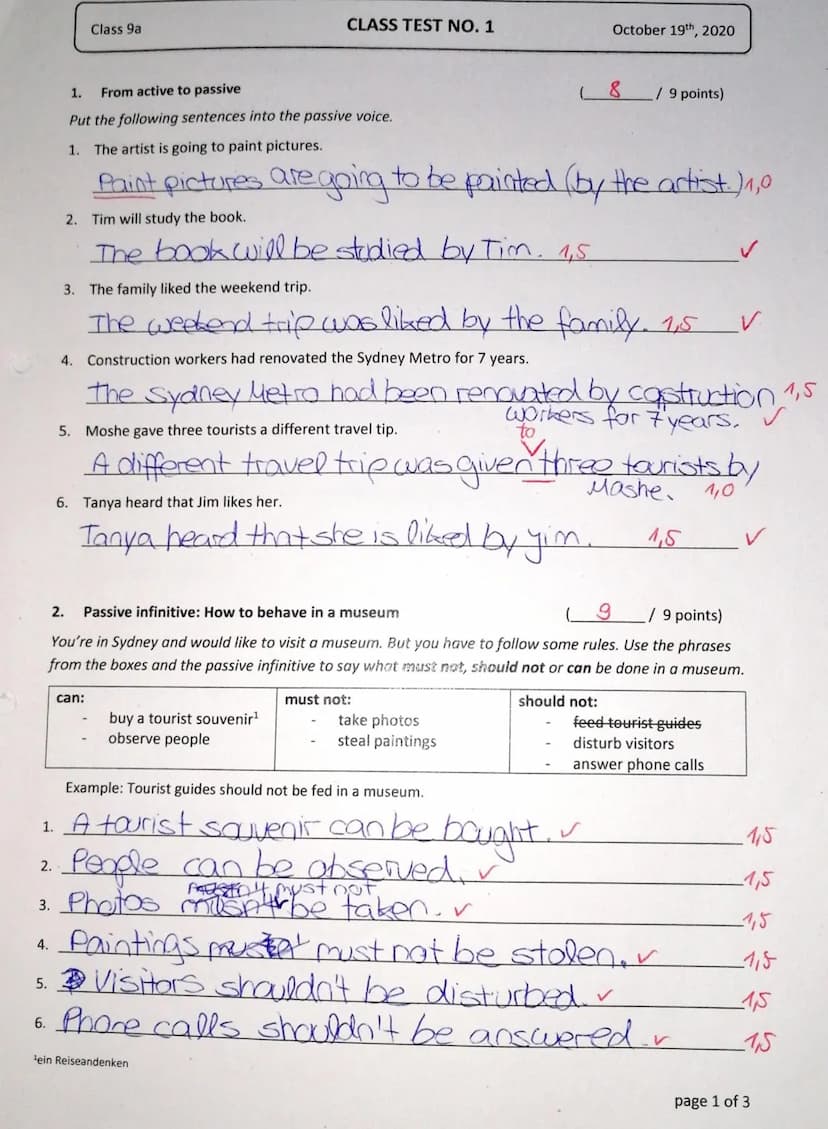 Class 9a
CLASS TEST NO. 1
October 19th, 2020
1. From active to passive
( 8 / 9 points)
Put the following sentences into the passive voice.
1. The artist is going to paint pictures.
Paint pictures are going to be painted (by the artist.) 1,0
2. Tim will study the book.
The book will be studied by Tim. 1,5 ✓
3. The family liked the weekend trip.
The weekend trip was liked by the family. 1,5 ✓
4. Construction workers had renovated the Sydney Metro for 7 years.
The Sydney Metro had been renovated by construction 1,5
workers for 7 years. ✓
5. Moshe gave three tourists a different travel tip.
to
A different travel trip was given three tourists by
Moshe. 1,0
6. Tanya heard that Jim likes her.
Tanya heard that she is liked by yim. 1,5 ✓
2. Passive infinitive: How to behave in a museum
( 9 / 9 points)
You're in Sydney and would like to visit a museum. But you have to follow some rules. Use the phrases
from the boxes and the passive infinitive to say what must not, should not or can be done in a museum.
can:
- buy a tourist souvenir¹
- observe people
must not:
- take photos
- steal paintings
should not:
- feed tourist guides
- disturb visitors
- answer phone calls
Example: Tourist guides should not be fed in a museum.
1. A tourist souvenir can be bought. ✓ 1,5
2. People can be observed. ✓ 1,5
must not
3. Photos be taken. ✓ 1,5
4. Paintings must not be stolen. ✓ 1,5
5. Visitors shouldn't be disturbed. ✓ 1,5
6. Phone calls shouldn't be answered. ✓ 1,5
¹ein Reiseandenken
page 1 of 3